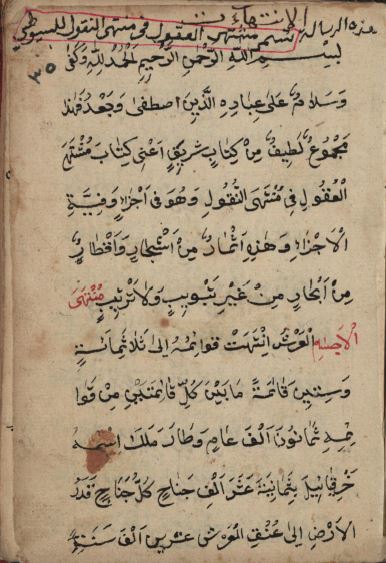 الانتهاآت
هذه الرسالة تسمى مشتهى العقول فى منتهى النقول للسيوطي
بسم الله الرحمن الرحيم الحمد لله وكفى
وسلام على عباده الذين اصطفى وبعد فهذا
مجموع لطيف من كتاب شريف اعنى كتاب مشتهى
العقول فى منتهى النقول وهو فى اجزاء وفية
الاجزاء وهذه اثمار من اشجار واقطار
من ابحار من غير تبويب ولا ترتيب منتهى
العرش انتهت قوائمه الى ثلاثمائة
وستين قائمة ما بين كل قائمتين من قوا
ئمه ثمانون الف عام وطار ملك اسمه
خرقيائيل بثمانية عشر الف جناح كل جناح قدر
الارض الى عنق العرش عشرين الف سنة